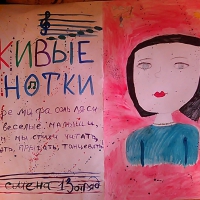 ЖИВЫЕ
НОТКИ
ре ми фа соль ля си
веселые малыши
мы стихи читать,
прыгать, танцевать
смена 13 отряд